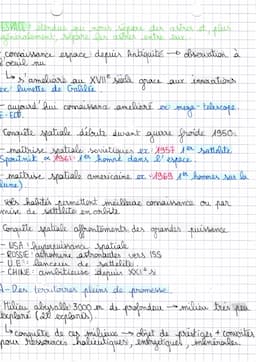 ESPACE = étendue qui nous sépare des astres et, plus
généralement, sépare les astres entre eux.
- connaissance espace depuis Antiquité → observation à
l'oeil nu
↳ s'améliore au XVIIe siècle grace aux innovations
ex: lunette de Galilée.
- aujourd'hui connaissance amélioré ex mega-telescope
E-ELT.
Conquête spatiale débute durant guerre froide 1950s
- maîtrise spatiale soviétiques ex: 1957 1er satellite
Spoutnik 1961: 1er homme dans l'espace.
- maîtrise spatiale américaine ex: 1969 1er hommes sur la
lune).
vols habités permettent meilleure connaissance ou par
mise de satellite en orbite
Conquête spatiale affrontements des grandes puissances
- USA: superpuissance spatiale
- RUSSIE: astronautes vers ISS
- U.E: lanceur de satellite
- CHINE: ambitieuse depuis XXIe s
A- Des territoires pleins de promesse
Milieu abyssale 3000 m de profondeur → milieu très peu
exploré (2% explorés)
↳ conquête de ces milieux → objet de prestiges + convoités
pour ressources halieutiques, énergétiques, minérales.